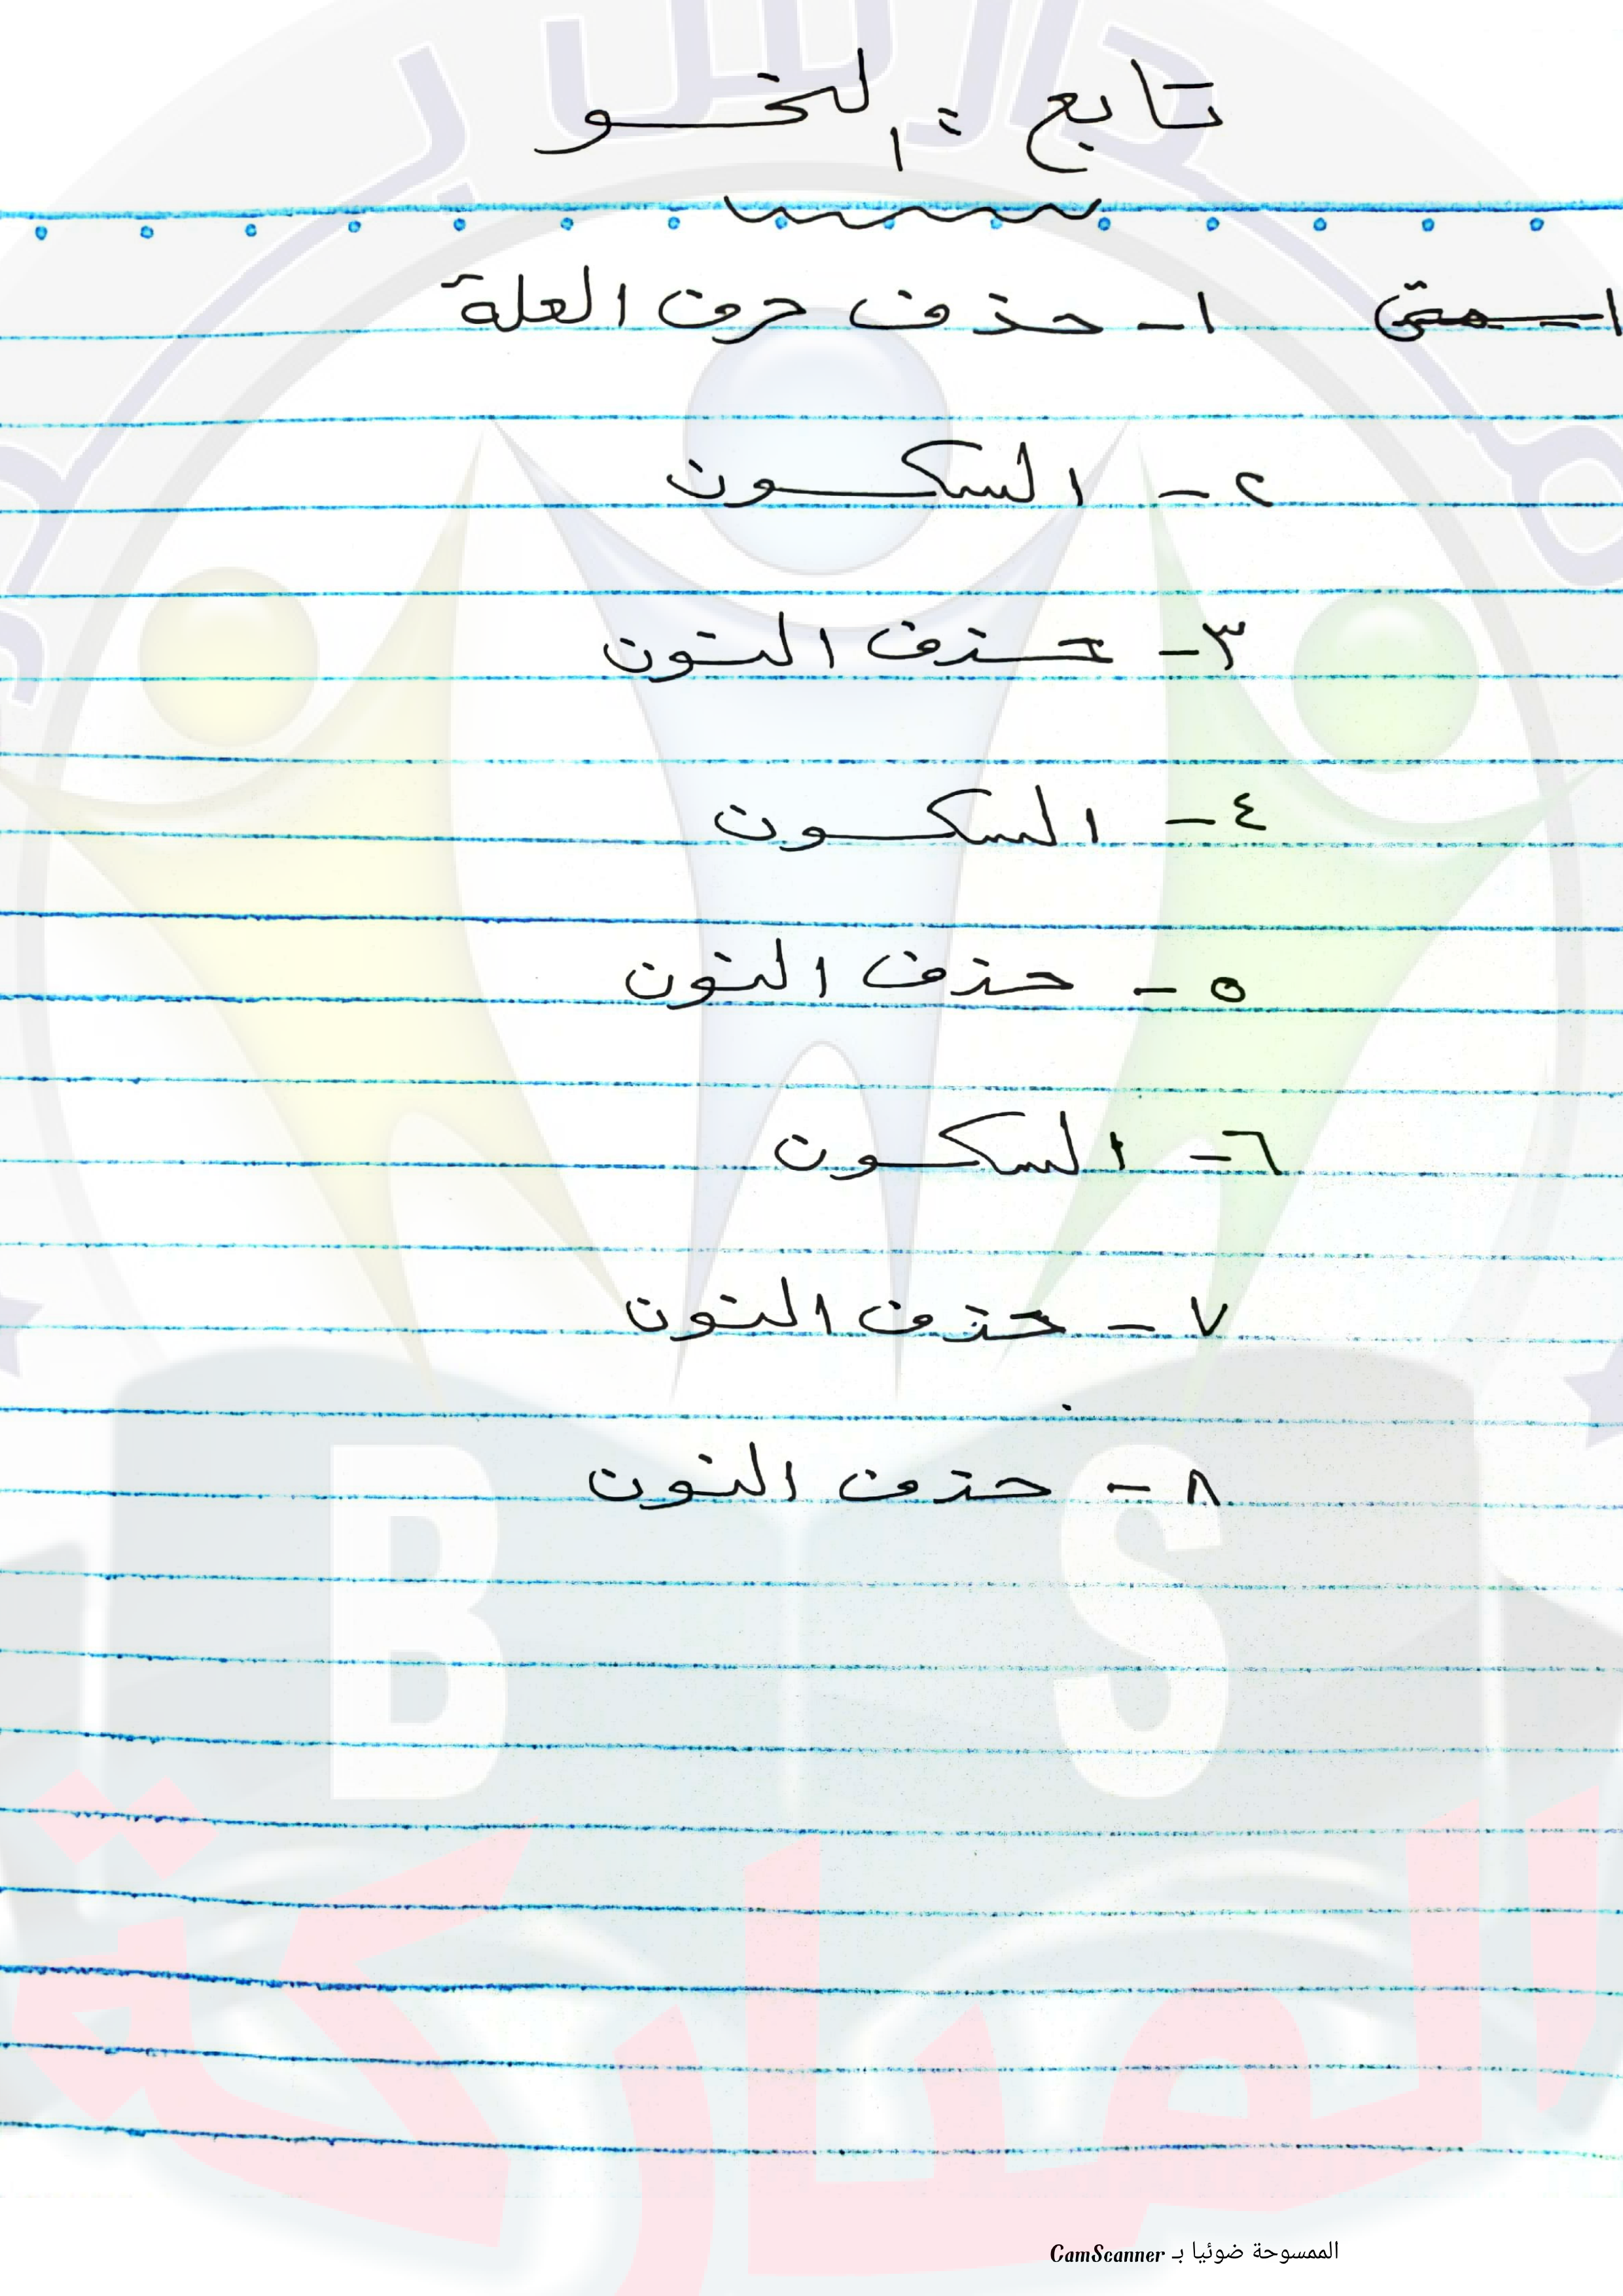 تابع : النحو
١- حذف حرف العلة
٢- السكون
٣- حذف النون
٤- السكون
٥- حذف النون
٦- السكون
٧- حذف النون
٨- حذف النون
B S
المباركة
الممسوحة ضوئيا بـ CamScanner